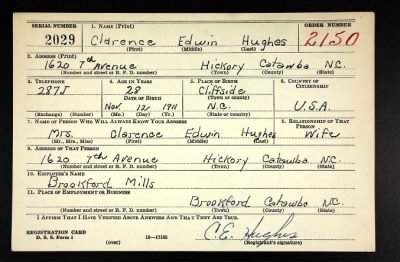 SERIAL NUMBER 1. NAME (Print) ORDER NUMBER
2029 Clarence Edwin Hughes 2150
(First) (Middle) (Last)
2. ADDRESS (Print)
1620 7th Avenue Hickory Catawba N.C.
(Number and street or R. F. D. number) (Town) (County) (State)
3. TELEPHONE 4. AGE IN YEARS 5. PLACE OF BIRTH 6. COUNTRY OF CITIZENSHIP
287J 28 Cliffside
DATE OF BIRTH (Town or county)
Nov. 12, 1911 N.C. U.S.A.
(Exchange) (Number) (Mo.) (Day) (Yr.) (State or country)
7. NAME OF PERSON WHO WILL ALWAYS KNOW YOUR ADDRESS 8. RELATIONSHIP OF THAT PERSON
Mrs. Clarence Edwin Hughes Wife
(Mr., Mrs., Miss) (First) (Middle) (Last)
9. ADDRESS OF THAT PERSON
1620 7th Avenue Hickory Catawba N.C.
(Number and street or R. F. D. number) (Town) (County) (State)
10. EMPLOYER'S NAME
Brookford Mills
11. PLACE OF EMPLOYMENT OR BUSINESS
Brookford Catawba N.C.
(Number and street or R. F. D. number) (Town) (County) (State)
I AFFIRM THAT I HAVE VERIFIED ABOVE ANSWERS AND THAT THEY ARE TRUE.
REGISTRATION CARD
D. S. S. Form 1 (over) 16—17105 C.E. Hughes
(Registrant's signature)